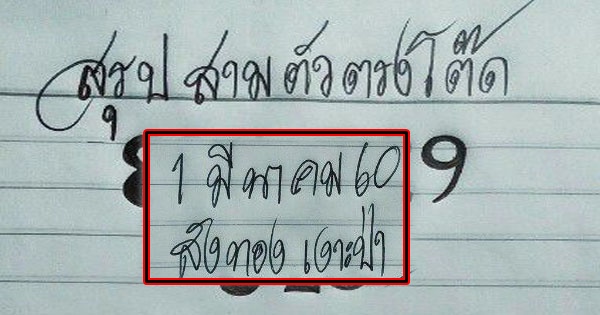 สรุป สามตัวตรงโต๊ด
1 มีนาคม 60
สังทอง เงาะป่า
9